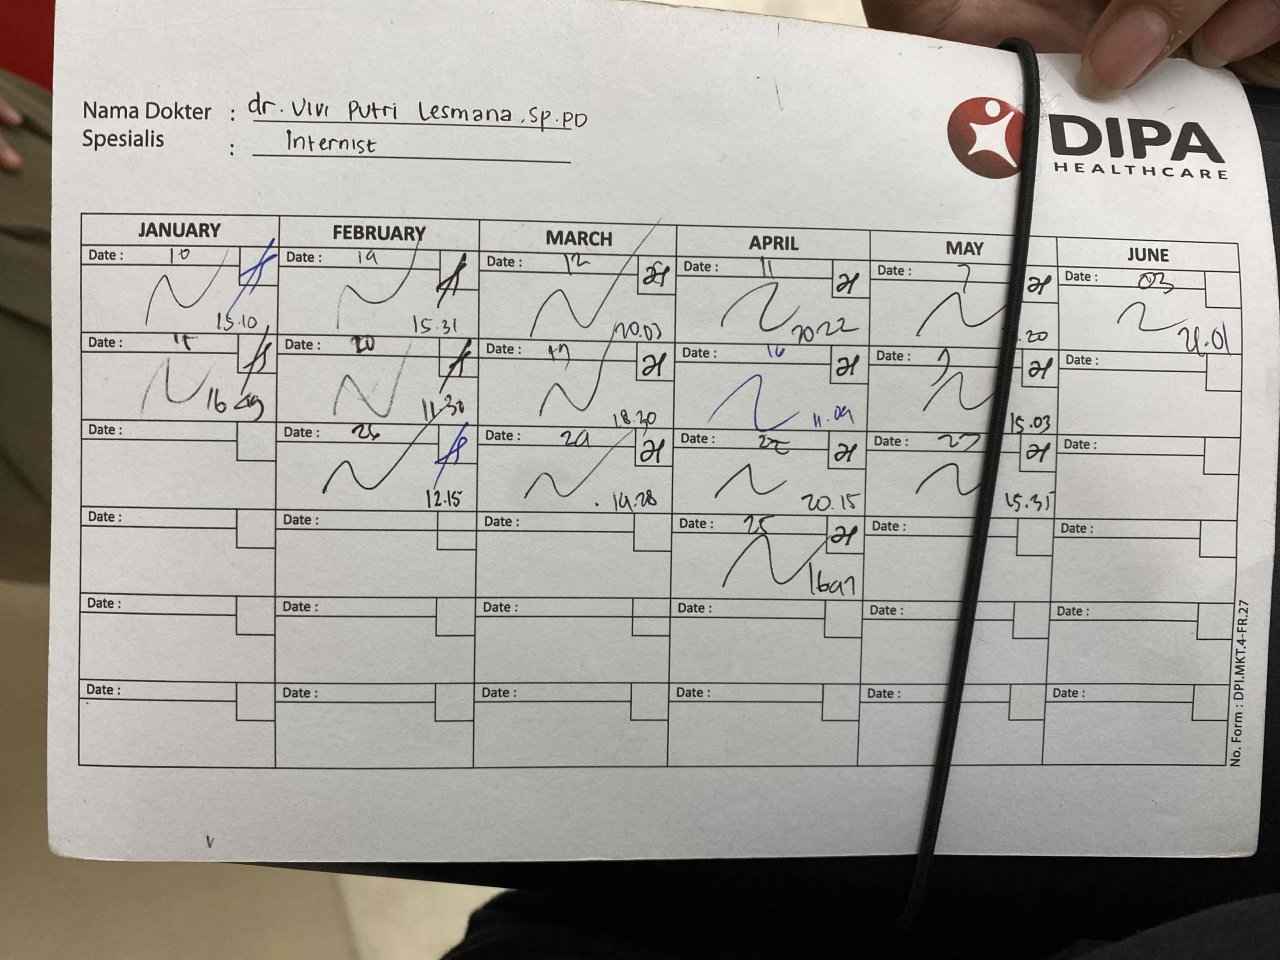 Nama Dokter : dr. Vivi Putri Lesmana, Sp.PD
Spesialis : Internist
DIPA
HEALTHCARE
JANUARY FEBRUARY MARCH APRIL MAY JUNE
Date : 10 Date : 19 Date : 12 Date : 11 Date : 7 Date : 03
15.10 15.31 20.03 20.22 .20 21.01
Date : Date : 20 Date : Date : 16 Date : Date :
16 49 11.30 18.30 11.09 15.03
Date : Date : 26 Date : 29 Date : 22 Date : 27 Date :
12.15 19.28 20.15 15.31
Date : Date : Date : Date : 25 Date : Date :
Date : Date : Date : Date : Date : Date :
Date : Date : Date : Date : Date : Date :
No. Form : DPI.MKT.4-FR.27